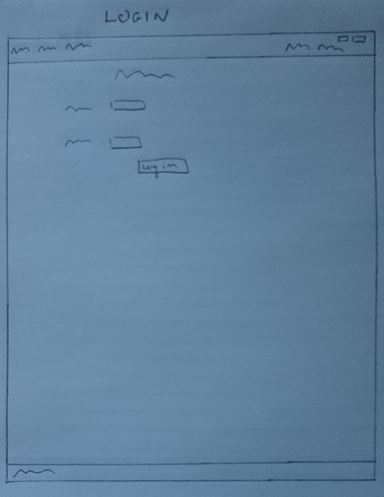 LOGIN
Log in